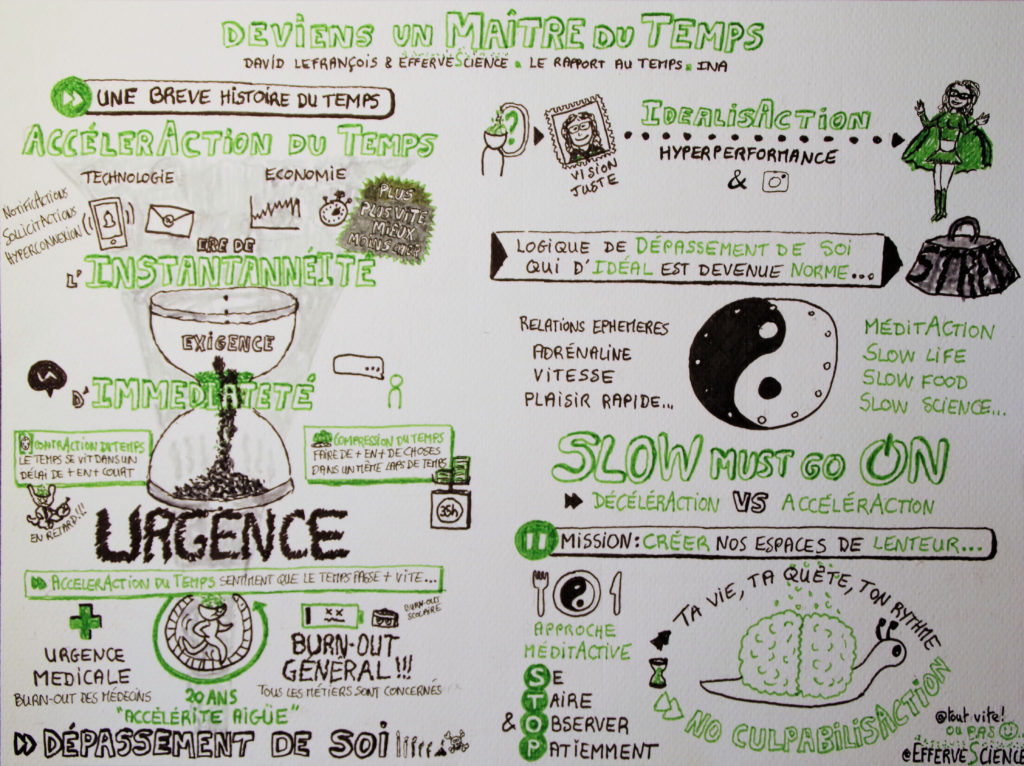 DEVIENS UN MAÎTRE DU TEMPS
DAVID LEFRANÇOIS & EFFERVESCIENCE . LE RAPPORT AU TEMPS . INA
UNE BREVE HISTOIRE DU TEMPS
ACCÉLERACTION DU TEMPS
TECHNOLOGIE
ECONOMIE
NOTIFICACTIONS
SOLLICITACTIONS
HYPERCONNEXION
PLUS
PLUS VITE
MIEUX
MOINS CHER
ERE DE
L'INSTANTANNÉITÉ
EXIGENCE
D'IMMEDIATETÉ
CONTRACTION DU TEMPS
LE TEMPS SE VIT DANS UN
DÉLAI DE + EN + COURT
EN RETARD!!!
COMPRESSION DU TEMPS
FAIRE DE + EN + DE CHOSES
DANS UN MÊME LAPS DE TEMPS
35h
URGENCE
ACCELERACTION DU TEMPS SENTIMENT QUE LE TEMPS PASSE + VITE...
URGENCE
MEDICALE
BURN-OUT DES MÉDECINS
20 ANS
"ACCÉLÉRITE AIGÜE"
BURN-OUT
SCOLAIRE
BURN-OUT
GÉNÉRAL!!!
TOUS LES MÉTIERS SONT CONCERNÉS
DÉPASSEMENT DE SOI
?
VISION
JUSTE
IDEALISACTION
HYPERPERFORMANCE
&
LOGIQUE DE DÉPASSEMENT DE SOI
QUI D'IDÉAL EST DEVENUE NORME...
RELATIONS EPHEMERES
ADRÉNALINE
VITESSE
PLAISIR RAPIDE...
MÉDITACTION
SLOW LIFE
SLOW FOOD
SLOW SCIENCE...
SLOW MUST GO ON
DÉCÉLÉRACTION VS ACCÉLÉRACTION
MISSION: CRÉER NOS ESPACES DE LENTEUR...
APPROCHE
MÉDITACTIVE
SE
TAIRE
& OBSERVER
PATIEMMENT
TA VIE, TA QUÊTE, TON RYTHME
NO CULPABILISACTION
@tout vite!
OU PAS
@EFFERVESCIENCE